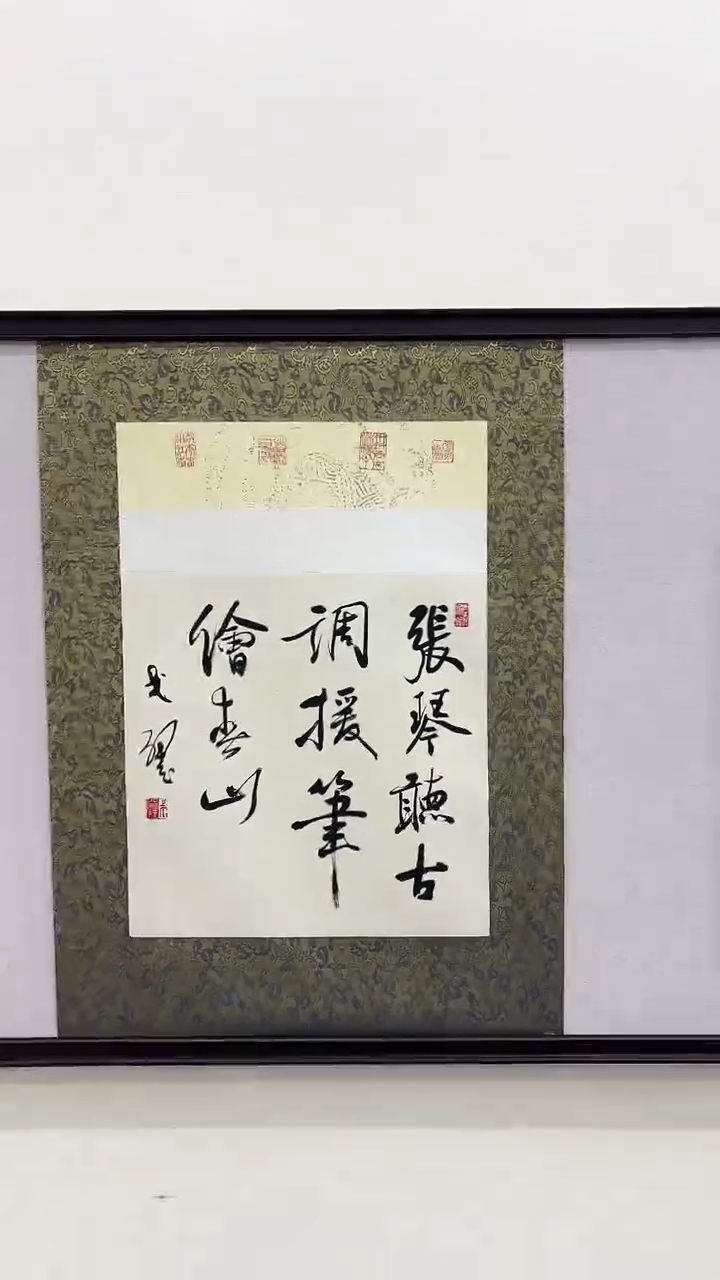 張琴聽古
調援筆
繪春山